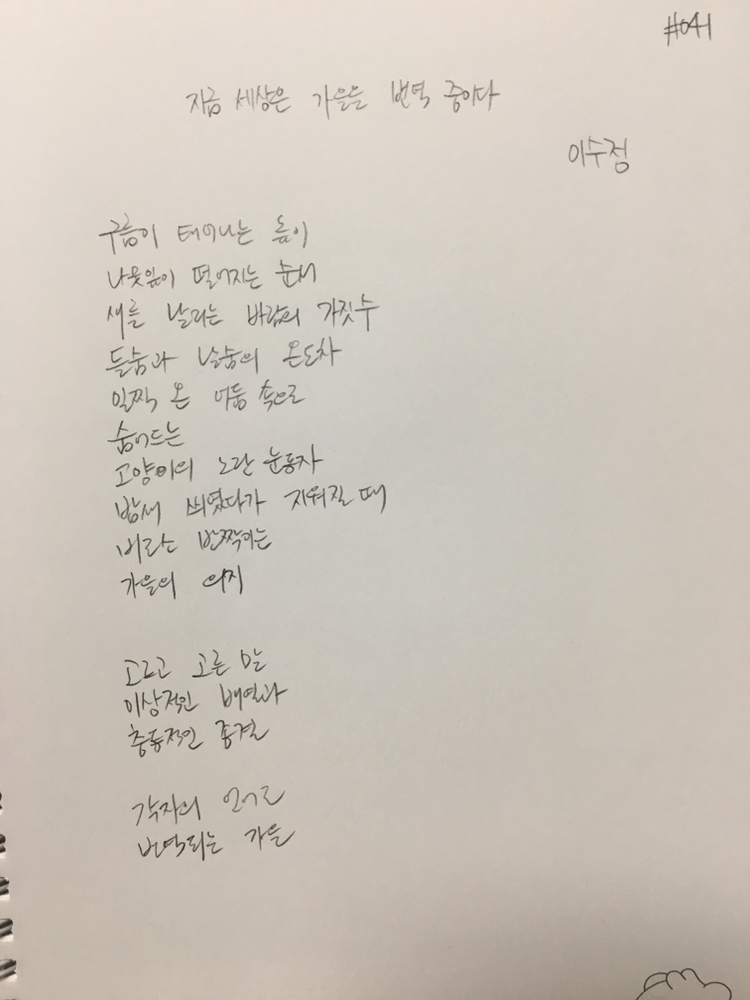 #041
지금 세상은 가을을 번역 중이다
이수정
구름이 태어나는 높이
나뭇잎이 떨어지는 순서
새를 날리는 바람의 가짓수
들숨과 날숨의 온도차
일찍 온 어둠 속으로
숨어드는
고양이의 노란 눈동자
밤새 씌였다가 지워질 때
비로소 반짝이는
가을의 의지
고르고 고른 말
이상적인 배열과
충동적인 종결
각자의 언어로
번역되는 가을